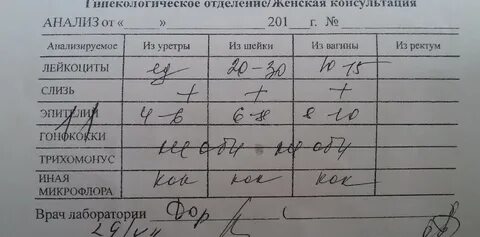 Гинекологическое отделение/Женская консультация
АНАЛИЗ от «____»__________201___г. №______
Анализируемое Из уретры Из шейки Из вагины Из ректум
ЛЕЙКОЦИТЫ ед 20-30 10-15
СЛИЗЬ + + +
ЭПИТЕЛИЙ 4-6 6-8 8-10
ГОНОКОККИ не обн не обн
ТРИХОМОНУС
ИНАЯ МИКРОФЛОРА кок кок кок
Врач лаборатории